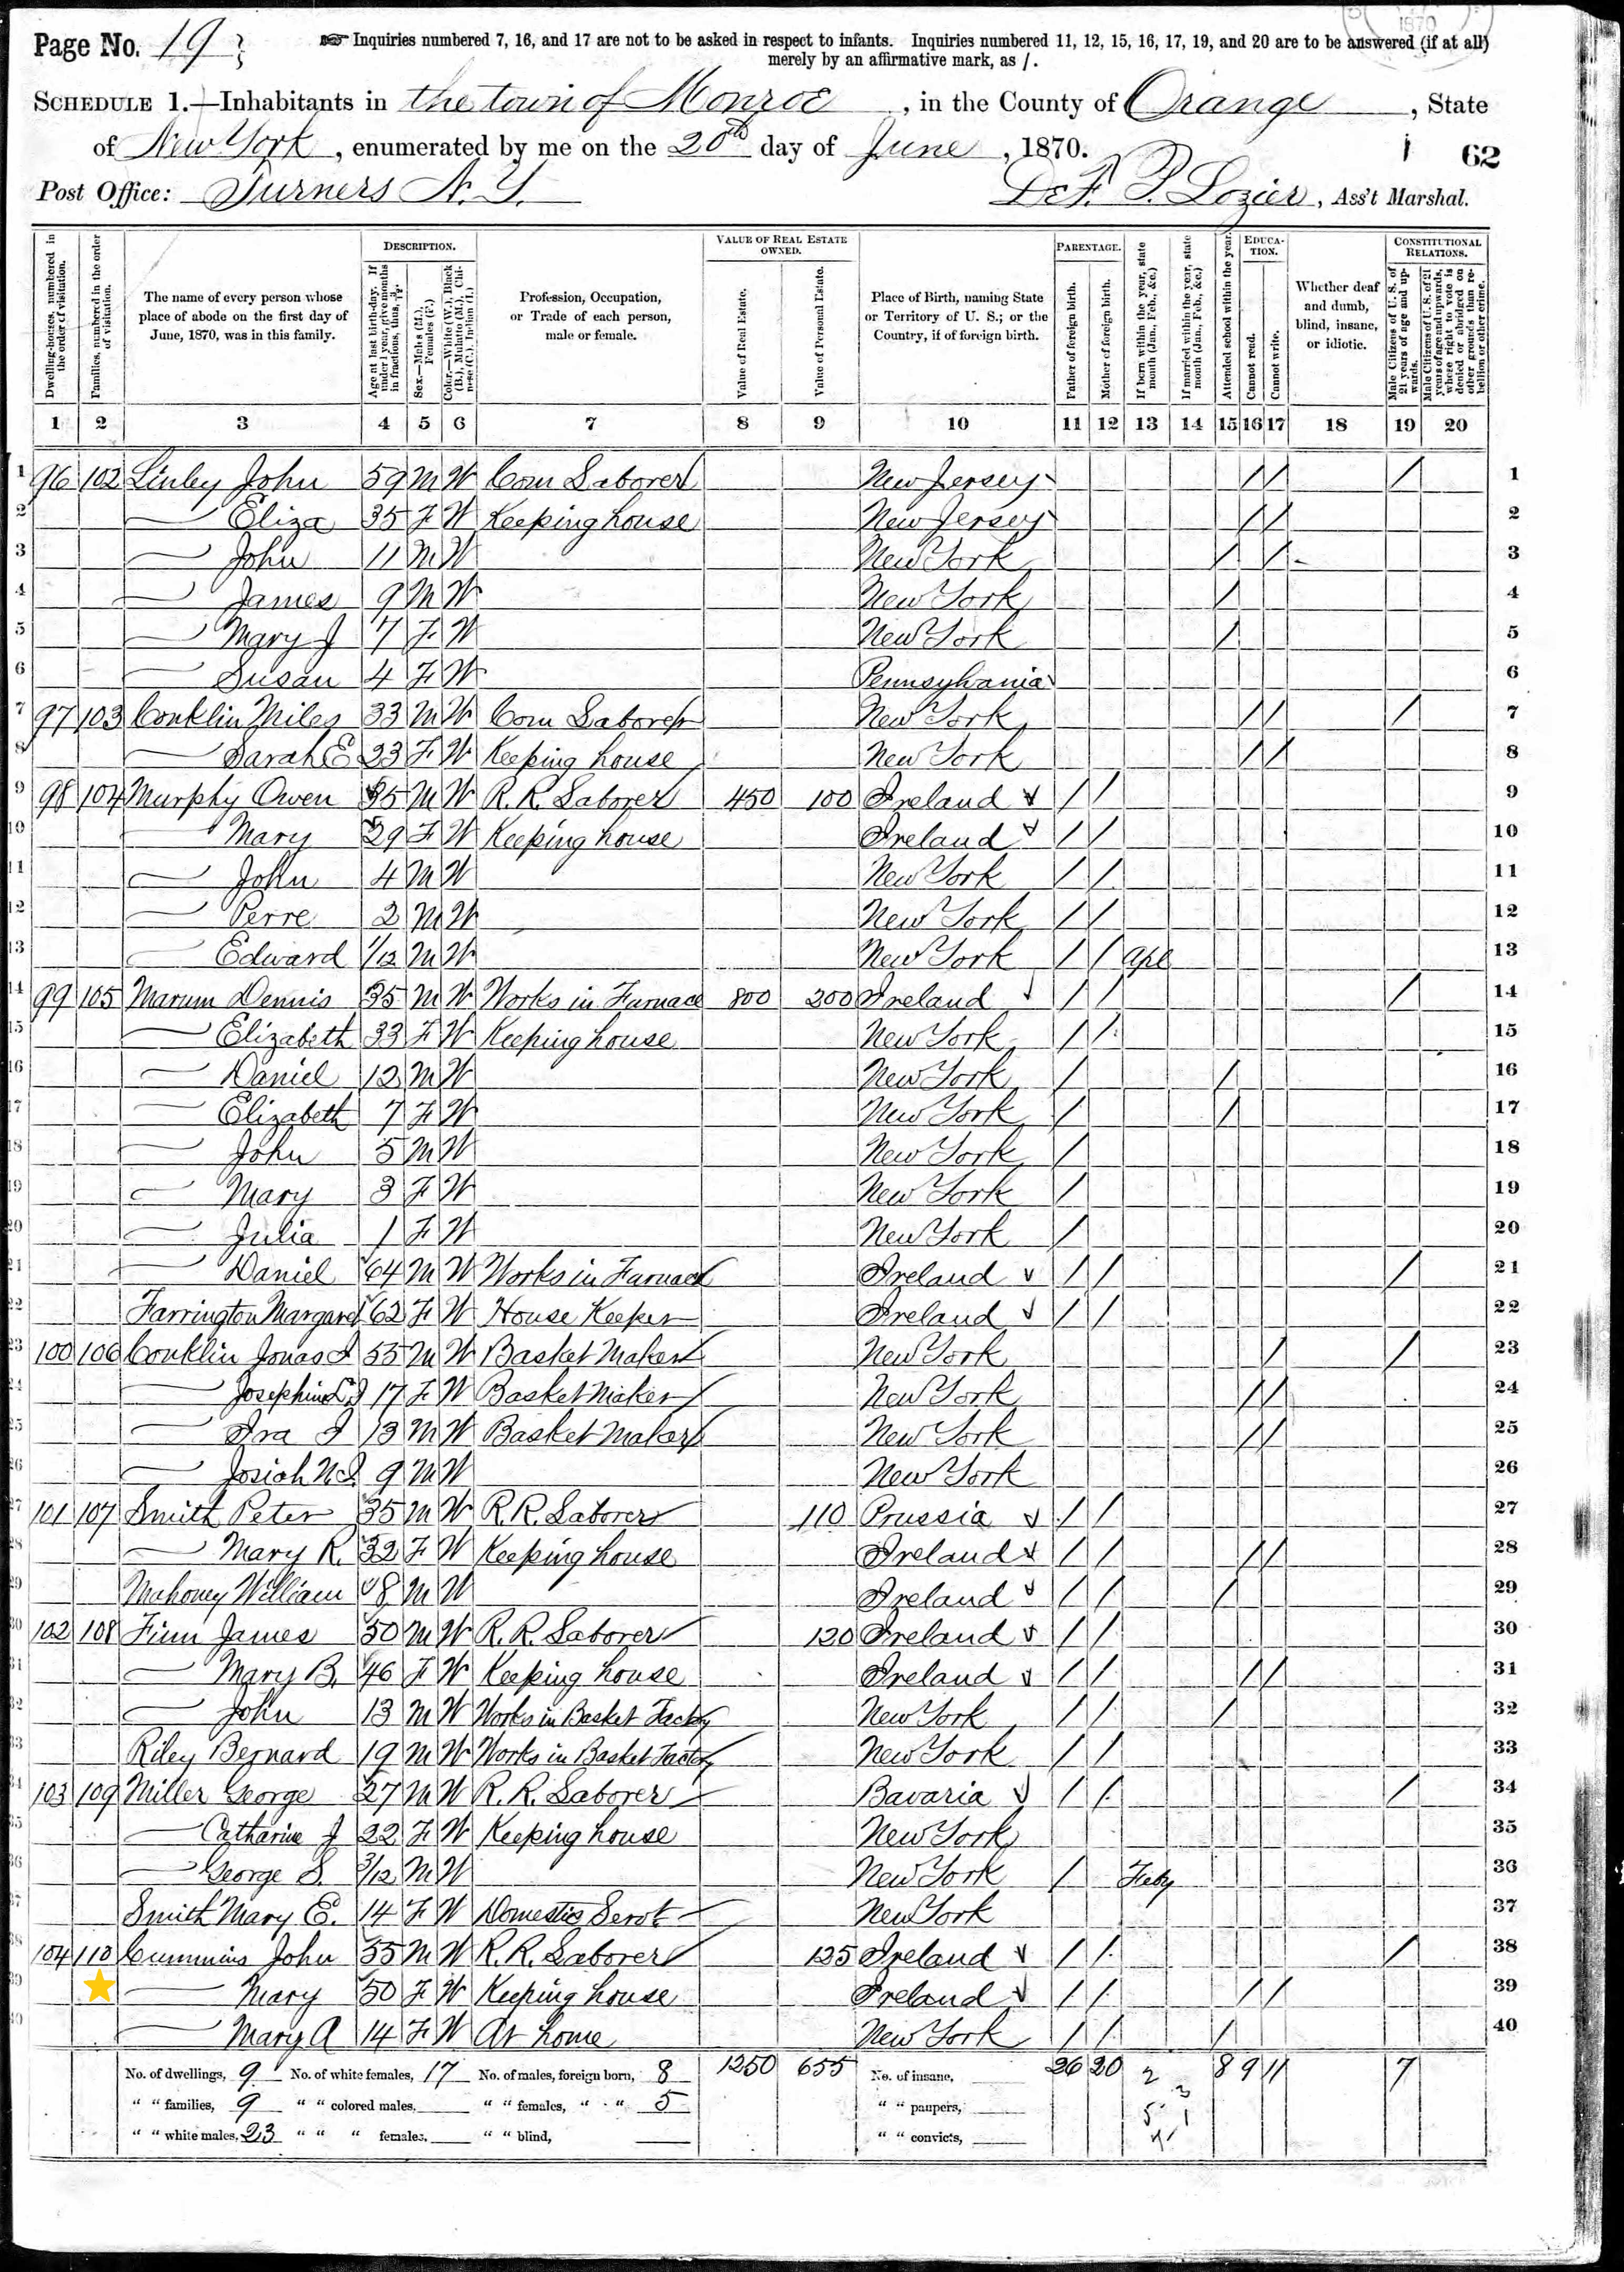 Page No. 19
Inquiries numbered 7, 16, and 17 are not to be asked in respect to infants. Inquiries numbered 11, 12, 15, 16, 17, 19, and 20 are to be answered (if at all)
merely by an affirmative mark, as /.
1870
SCHEDULE 1.—Inhabitants in the town of Monroe, in the County of Orange, State
of New York, enumerated by me on the 20th day of June, 1870.
62
Post Office: Turners N. Y.
De F. P. Lozier, Ass't Marshal.
Dwelling-houses, numbered in the order of visitation.
Families, numbered in the order of visitation.
The name of every person whose place of abode on the first day of June, 1870, was in this family.
DESCRIPTION.
Age at last birth-day. If under 1 year, give months in fractions, thus, 3/12.
Sex.—Males (M.), Females (F.)
Color.—White (W.), Black (B.), Mulatto (M.), Chinese (C.), Indian (I.)
Profession, Occupation, or Trade of each person, male or female.
VALUE OF REAL ESTATE OWNED.
Value of Real Estate.
Value of Personal Estate.
Place of Birth, naming State or Territory of U. S.; or the Country, if of foreign birth.
PARENTAGE.
Father of foreign birth.
Mother of foreign birth.
If born within the year, state month (Jan., Feb., &c.)
If married within the year, state month (Jan., Feb., &c.)
Attended school within the year.
EDUCATION.
Cannot read.
Cannot write.
Whether deaf and dumb, blind, insane, or idiotic.
CONSTITUTIONAL RELATIONS.
Male Citizens of U. S. of 21 years of age and upwards.
Male Citizens of U. S. of 21 years of age and upwards, whose right to vote is denied or abridged on other grounds than rebellion or other crime.
1 2 3 4 5 6 7 8 9 10 11 12 13 14 15 16 17 18 19 20
1 96 102 Linley John 59 M W Com Laborer New Jersey / / / 1
2 — Eliza 35 F W Keeping house New Jersey / / 2
3 — John 11 M W New York / / 3
4 — James 9 M W New York / 4
5 — Mary J 7 F W New York / 5
6 — Susan 4 F W Pennsylvania 6
7 97 103 Conklin Miles 33 M W Com Laborer New York / / / 7
8 — Sarah E 23 F W Keeping house New York / / 8
9 98 104 Murphy Owen 35 M W R. R. Laborer 450 100 Ireland / / 9
10 — Mary 29 F W Keeping house Ireland / / 10
11 — John 4 M W New York / / 11
12 — Perre 2 M W New York / / 12
13 — Edward 1/12 M W New York / / Apl 13
14 99 105 Marum Dennis 35 M W Works in Furnace 800 200 Ireland / / / 14
15 — Elizabeth 33 F W Keeping house New York / / 15
16 — Daniel 12 M W New York / / 16
17 — Elizabeth 7 F W New York / / 17
18 — John 5 M W New York / 18
19 — Mary 3 F W New York / 19
20 — Julia 1 F W New York / 20
21 — Daniel 64 M W Works in Furnace Ireland / / / 21
22 Farrington Margaret 62 F W House Keeper Ireland / / 22
23 100 106 Conklin Jonas I 55 M W Basket Maker New York / / 23
24 — Josephine L I 17 F W Basket Maker New York / / 24
25 — Ira I 13 M W Basket Maker New York / / 25
26 — Josiah N I 9 M W New York 26
27 101 107 Smith Peter 35 M W R. R. Laborer 110 Prussia / / 27
28 — Mary R. 32 F W Keeping house Ireland / / / / 28
29 Mahoney William 8 M W Ireland / / / 29
30 102 108 Finn James 50 M W R. R. Laborer 120 Ireland / / 30
31 — Mary B. 46 F W Keeping house Ireland / / / / 31
32 — John 13 M W Works in Basket Facty New York / / / 32
33 Riley Bernard 19 M W Works in Basket Facty New York / / 33
34 103 109 Miller George 27 M W R. R. Laborer Bavaria / / / 34
35 — Catharine J 22 F W Keeping house New York 35
36 — George S. 3/12 M W New York / Feby 36
37 Smith Mary E. 14 F W Domestic Servt New York 37
38 104 110 Cummins John 55 M W R. R. Laborer 125 Ireland / / / 38
39 — Mary 50 F W Keeping house Ireland / / / / 39
40 — Mary A 14 F W At home New York / / / 40
No. of dwellings, 9 No. of white females, 17 No. of males, foreign born, 8 1250 655 No. of insane, 26 20 2 8 9 11 7
" " families, 9 " " colored males, " " females, " " 5 " " paupers,
" " white males, 23 " " " females, " " blind, " " convicts,